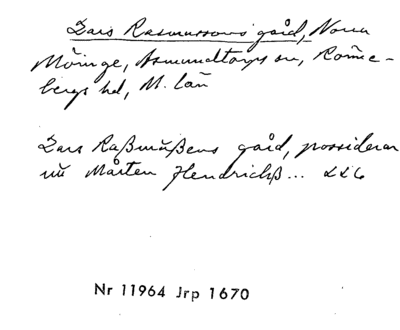 Lars Rasmussons gård, Norra
Möinge, Asmundtorps sn, Rönne-
bergs hd, M. län
Lars Raßmußens gård, possiderar
nu Mårten Hendrichß... LLG
Nr 11964 Jrp 1670